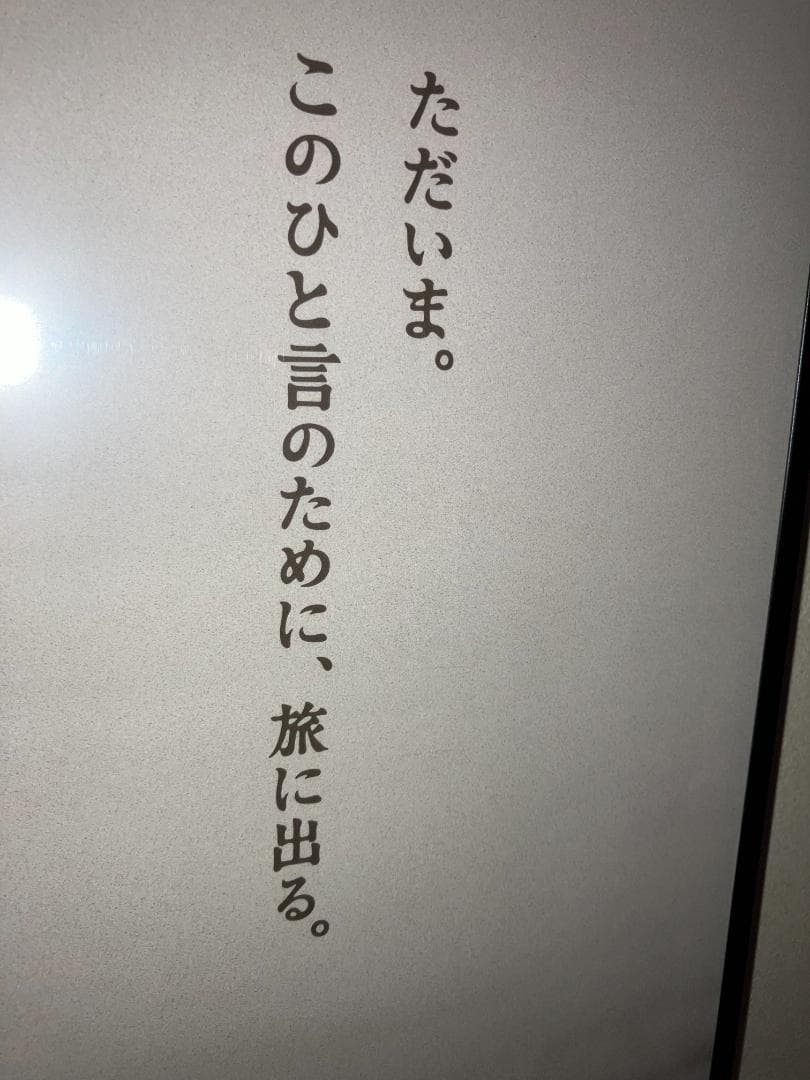 ただいま。
このひと言のために、旅に出る。